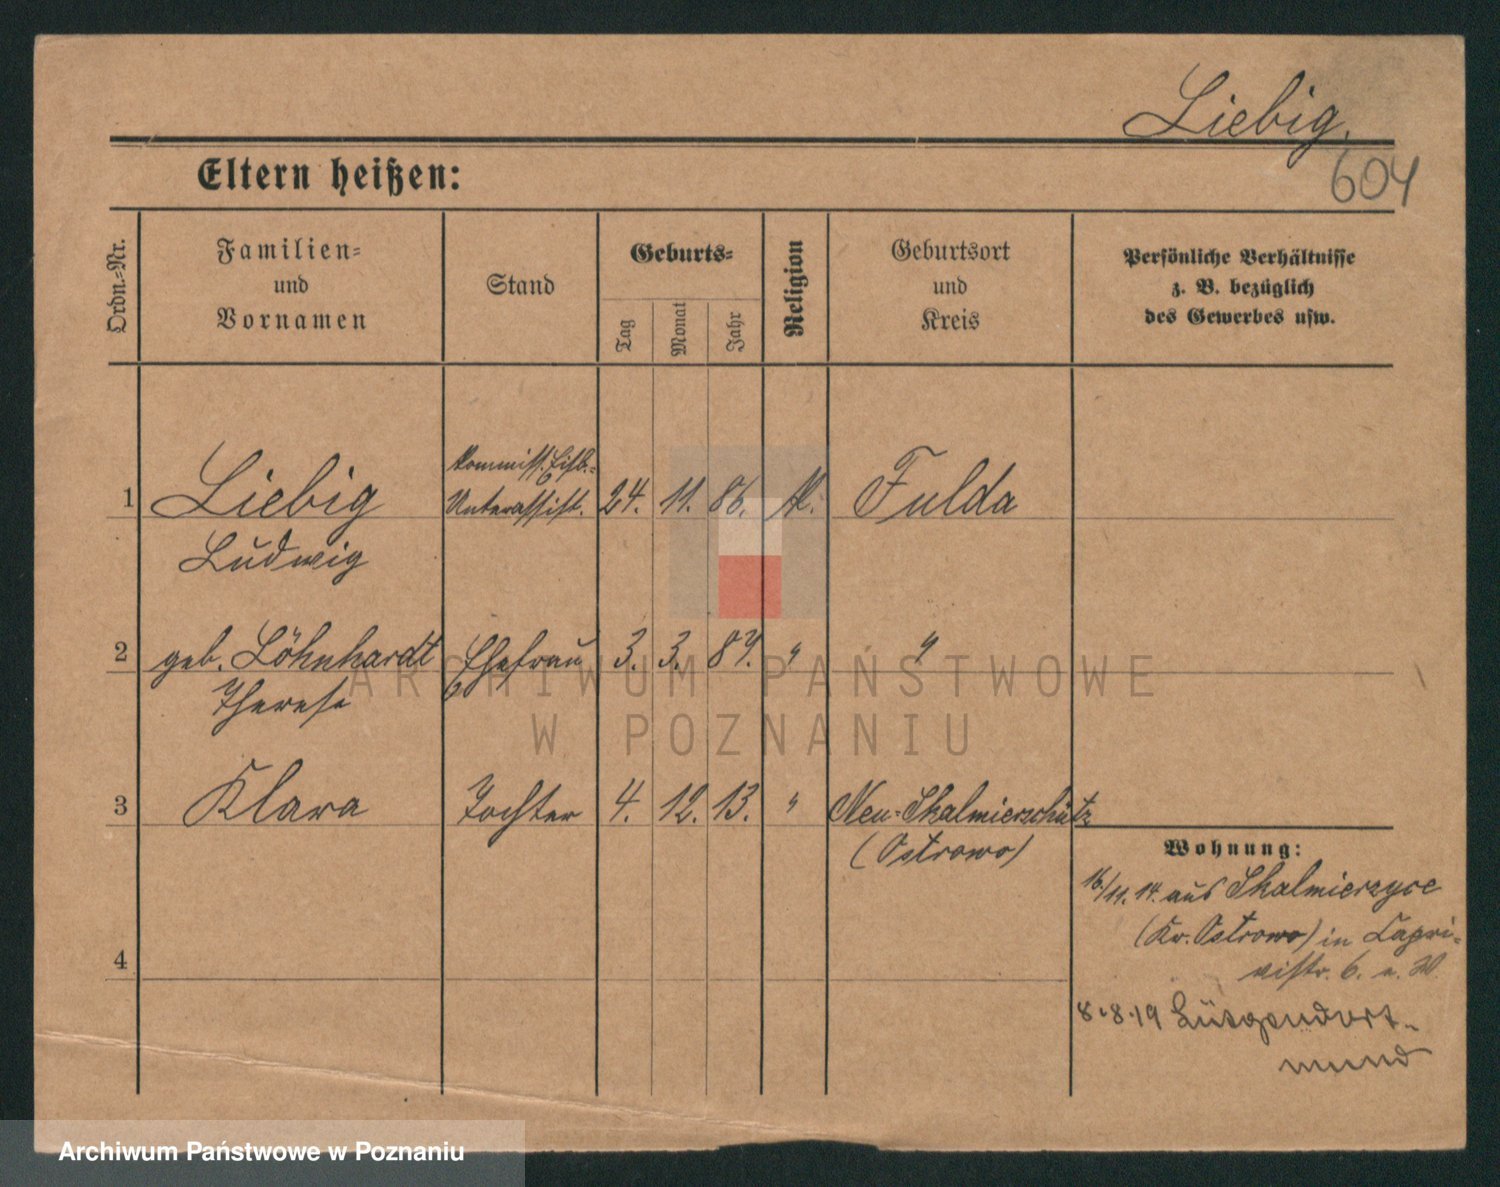 Liebig.
604
Eltern heißen:
Ordn.-Nr.
Familien-
und
Vornamen
Stand
Geburts-
Tag
Monat
Jahr
Religion
Geburtsort
und
Kreis
Persönliche Verhältnisse
z. B. bezüglich
des Gewerbes usw.
1 Liebig kommiss. Eisb.- Unterassist. 24. 11. 86. K. Fulda
Ludwig
2 geb. Löhnhardt Ehefrau 3. 3. 87. " "
Therese
3 Klara Tochter 4. 12. 13. " Neu-Skalmierschütz
(Ostrowo)
4
Wohnung:
16./11. 14. aus Skalmierzyce
(Kr. Ostrowo) in Capri-
vistr. 6. a. W.
8.8.19 Lütgendort-
mund
ARCHIWUM PAŃSTWOWE
W POZNANIU
Archiwum Państwowe w Poznaniu